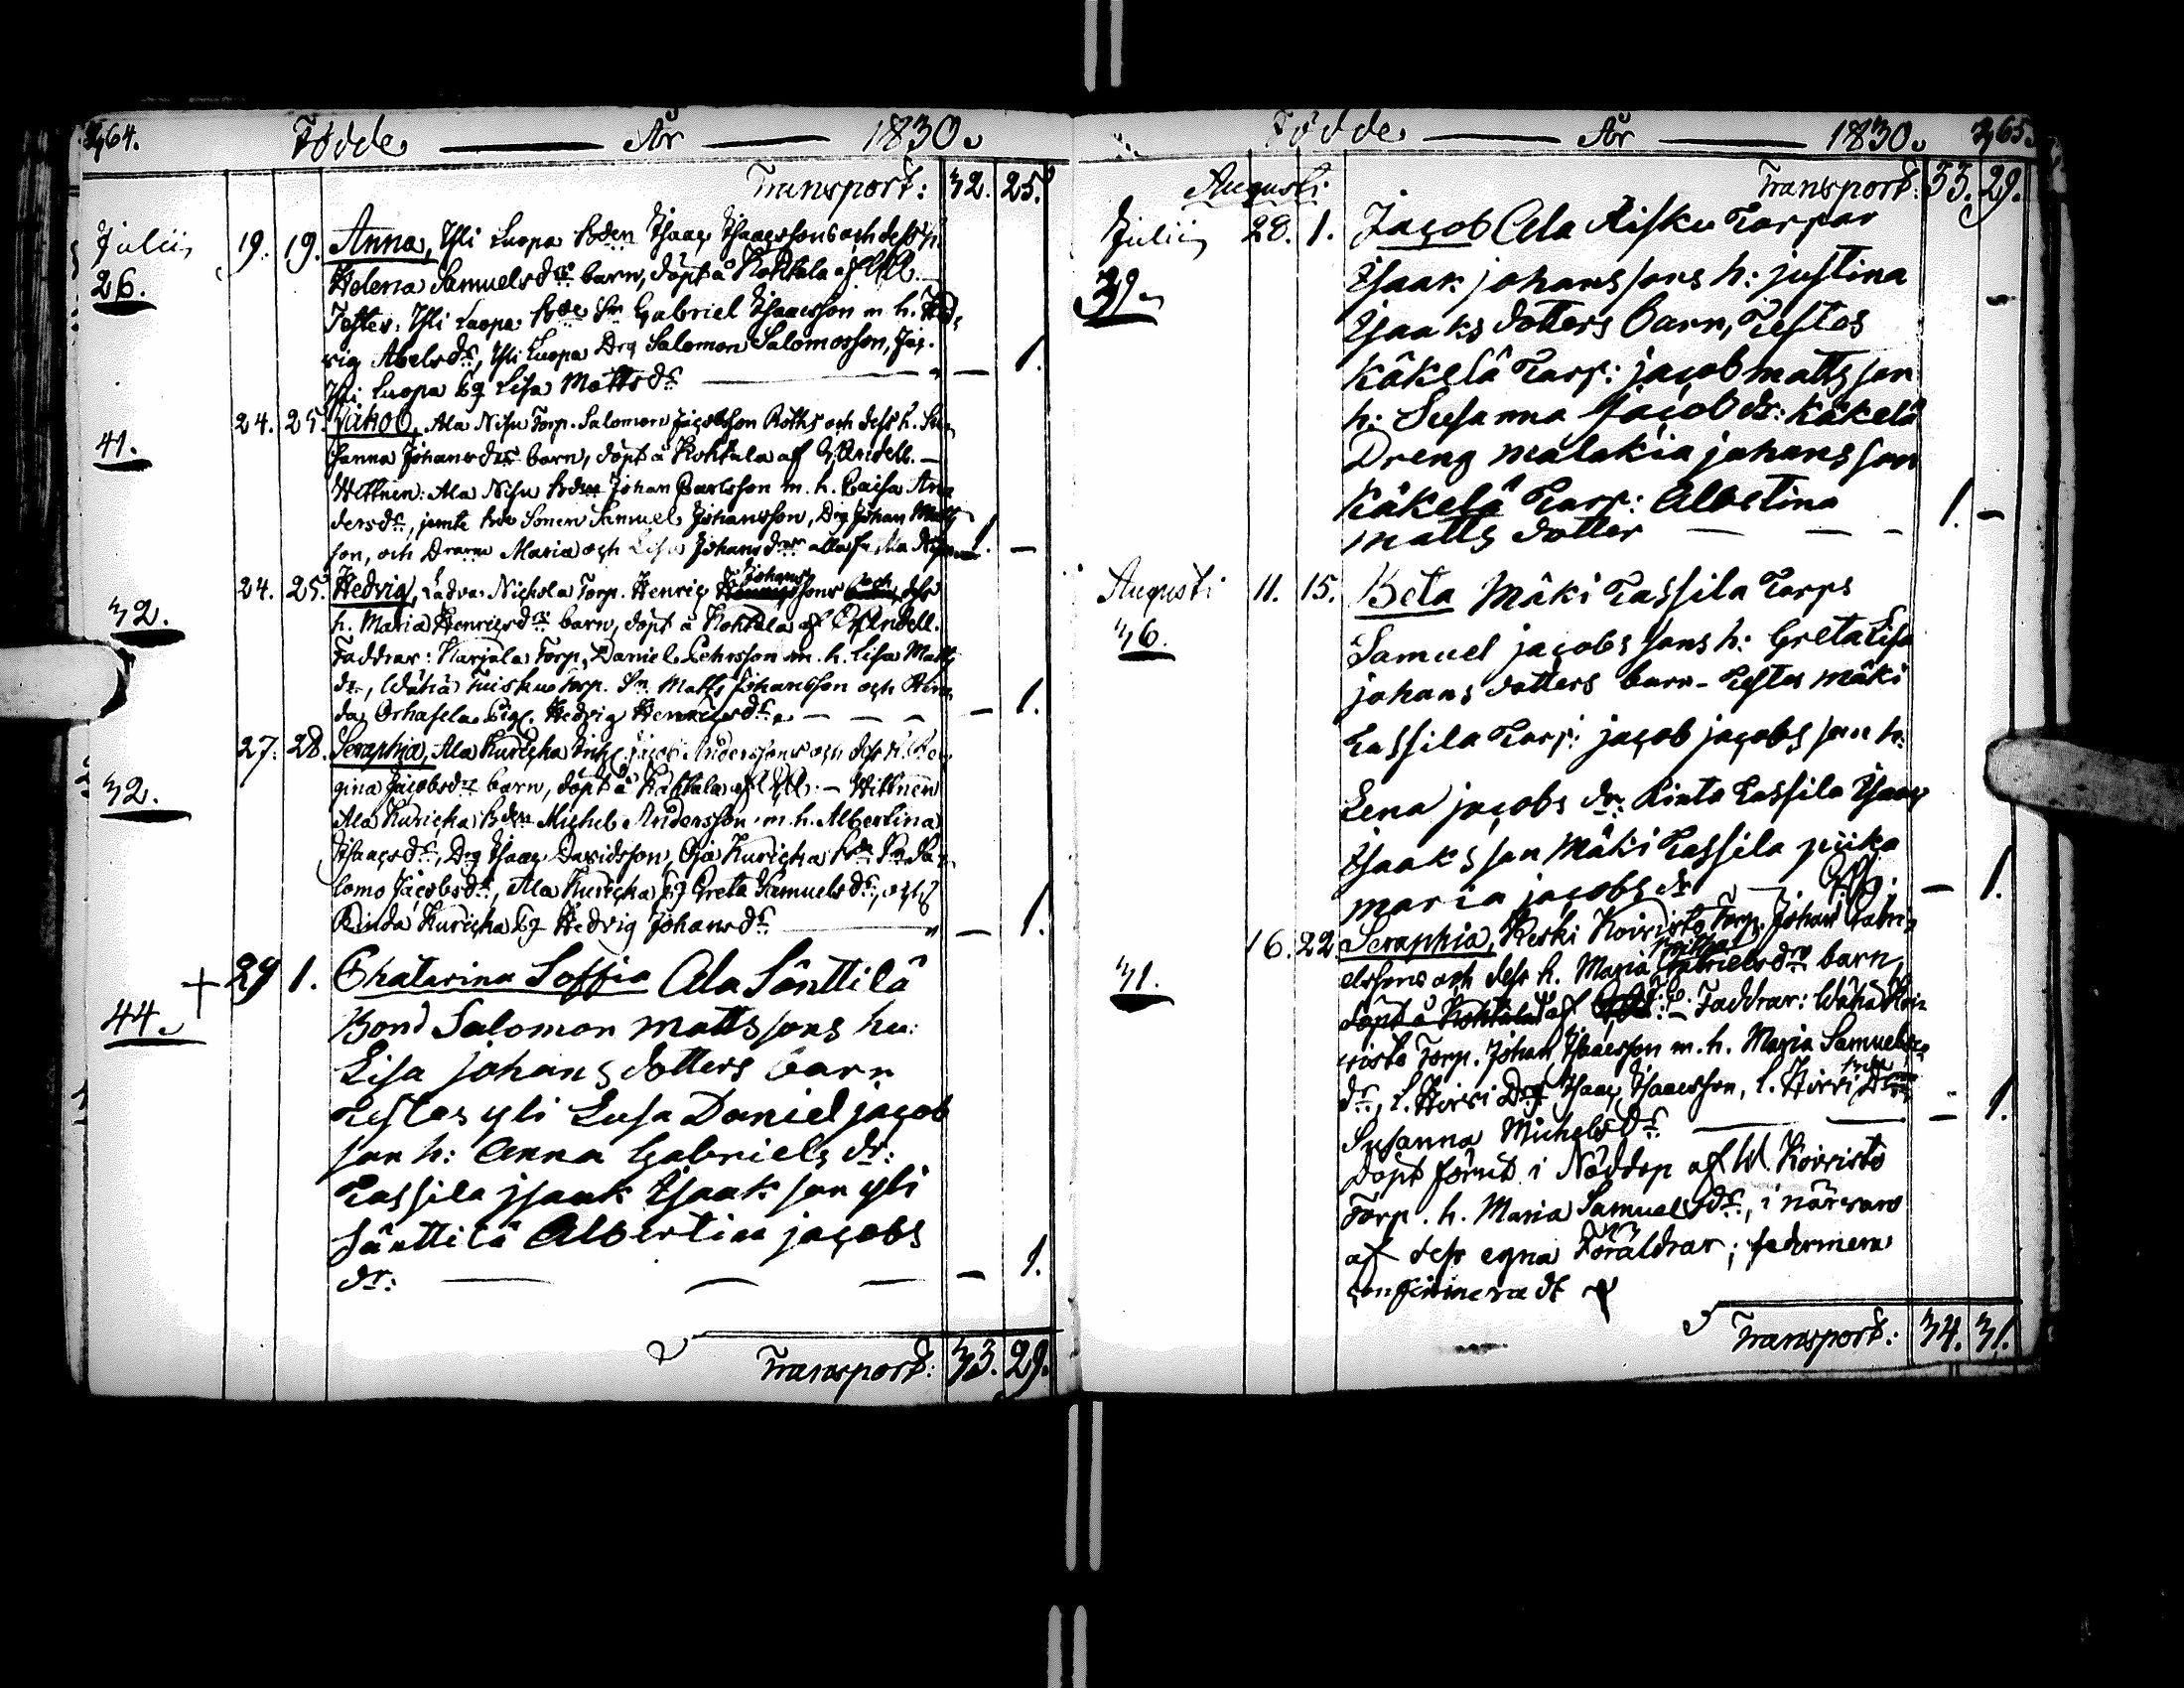 364. Födde — År — 1830.
Transport: 32. 25.
Julii 19. 19. Anna, Yli Luopa Bden Isaac Isaacssons och dess h.
26. Helena Samuelsdrs barn, döpt å Kohtala af
Testes: Yli Luopa Bde Sn Gabriel Isaacsson m. h. Hed-
vig Abelsdr, Yli Luopa Drg Salomon Salomonsson,
Yli Luopa Pg Lisa Mattsdr — " — 1.
24. 25. Jakob, Ala Nisu Torp. Salomon Jacobsson Roths och dess h. Su-
41. sanna Johansdrs barn, döpt å Kohtala af Andell. —
Wittnen: Ala Nisu Bden Johan Carlsson m. h. Caisa An-
dersdr, jemte Bde Sonen Samuel Johansson, Drg Johan Matts
son, och Maria och Lisa Johansdrar alla fr. Ala Nisu 1. —
24. 25. Hedvig, Ladva Nichola Torp. Henric Johanssons och dess
32. h. Maria Henricsdrs barn, döpt å Kohtala af Andell.
Faddrar: Karjala Torp. Daniel Pehrsson m. h. Lisa Matts
dr, Wähä Torp. Sn. Matts Johansson och Rin-
da Orhasela Pig. Hedvig Henricsdr. — — — 1.
27. 28. Seraphia, Ala Kuricka Jacob Anderssons och dess h. Re-
32. gina Jacobsdrs barn, döpt å Kohtala af — Wittnen
Ala Kuricka Bden Michel Andersson m. h. Albertina
Isaacsdr, Drg Isaac Davidsson, Oja Kuricka Sa-
lomo Jacobsdr, Ala Kuricka Pg Greta Samuelsdr, och
Rinda Kuricka Pg Hedvig Johansdr — " — 1.
+ 29 1. Chatarina Soffia Ala Sänttilä
44. Bond Salomon matts sons hu:
Lisa johans dotters barn
Testes yli Lusa Daniel jacob
son h: Anna Gabriels dr:
Tassila jsaak Isaak son yli
Sänttilä Albertina jacobs
dr: — — — — 1.
Transport: 33. 29.
Födde — År — 1830. 365.
Augusti Transport: 33. 29.
Julii 28. 1. Jacob Ala Risku Torpar
39. Isaak johans sons h: justina
Isaaks dotters barn, Testes
Käkelä Torp: jacob matts son
h: Susanna Jacob dr: Käkelä
Dreng malakia johans son
Käkelä Torp: Albetina
matts dotter — — — 1. —
Augusti 11. 15. Beta Mäki Tassila Torps
36. Samuel jacobs sons h: Greta Lisa
johans dotters barn — Testes mäki
Tassila Torp: jacob jacobs son h:
Lena jacobs dr: Rinta Tassila Isaac
Isaaks son Mäki Tassila piika
maria jacobs dr — — 1.
16. 22 Seraphia, Keski Koivisto Torp. Johan Gabri-
31. elssons och dess h. Maria Gabrielsdrs barn,
döpt å Kohtala af Faddrar: Wähä Koi-
visto Torp. Johan Isaacsson m. h. Maria Samuels-
dr, L. Hirvi Drg Isaac Isaacsson, L. Hirvi
Susanna Michelsdr. — — — 1.
Döpt förut i Nöddop af W. Koivisto
Torp. h. Maria Samuelsdr, i närvaro
af dess egna Föräldrar; sedermera
confirmeradt
Transport: 34. 31.